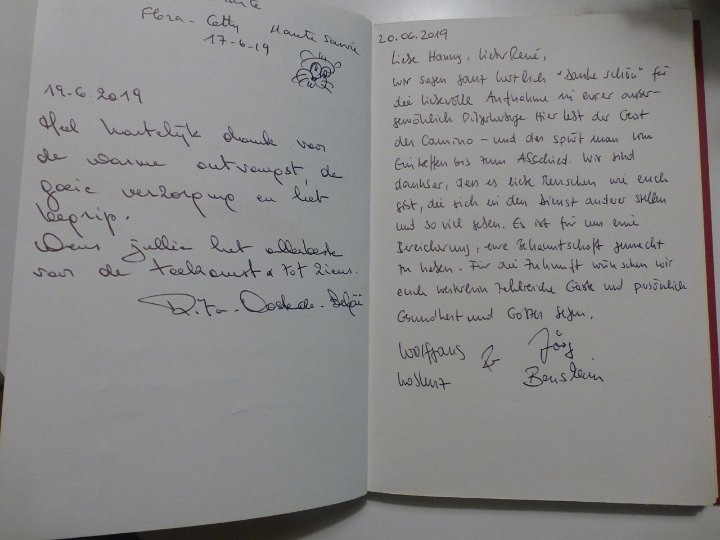 Flora - Cetty Haute Savoie
17-6-19
19.6.2019
Heel hartelijk dank voor
de warme ontvangst de
goeie verzorging en het
begrip.
Wens jullie het allerbeste
voor de toekomst & tot ziens.
Rita - Oostende - België
20.06.2019
Liebe Hanny, lieber René,
wir sagen ganz herzlich "danke schön" für
die liebevolle Aufnahme in eurer außer-
gewöhnlich Pilgerherberge Hier lebt der Geist
des Camino - und das spürt man vom
Eintreffen bis zum Abschied. Wir sind
dankbar, dass es liebe Menschen wie euch
gibt, die sich in den Dienst anderer stellen
und so viel geben. Es ist für uns eine
Bereicherung, eure Bekanntschaft gemacht
zu haben. Für die Zukunft wünschen wir
euch weiterhin zahlreiche Gäste und persönlich
Gesundheit und Gottes Segen.
Wolfgang & Jörg
Koblenz Bensheim